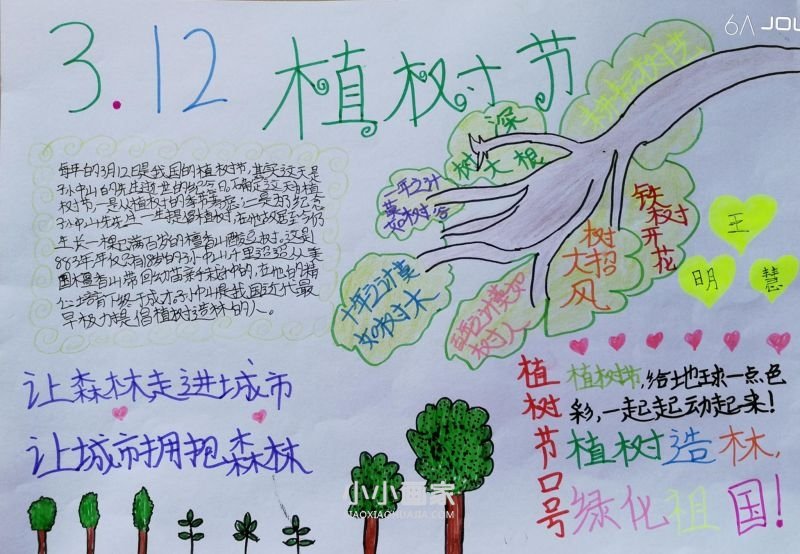 3.12 植树节
6A JOU
每年的3月12日是我国的植树节,其实这天是
孙中山的先生逝世的纪念日,确定这天为植
树节,一是从植树的季节考虑,二是为纪念
孙中山先生。先生一生提倡植树,在他故居至今仍
生长一棵已满百岁的檀香山酸豆树。这是
883年,年仅
的孙中山千里迢迢从美
国檀香山带回幼苗亲手栽种的,在他的精
心培育下终于成才。孙中山是我国近代最
早极力提倡植树造林的人。
树大根深
一年之计
莫如树谷
十年之计莫
如树木
莫如
树人
树大招风
铁树开花
王
明
慧
让森林走进城市
让城市拥抱森林
植树节口号
植树节,给地球一点色
彩,一起起动起来!
植树造林,
绿化祖国!
小小画家
XIAOXIAOHUAJIA.COM